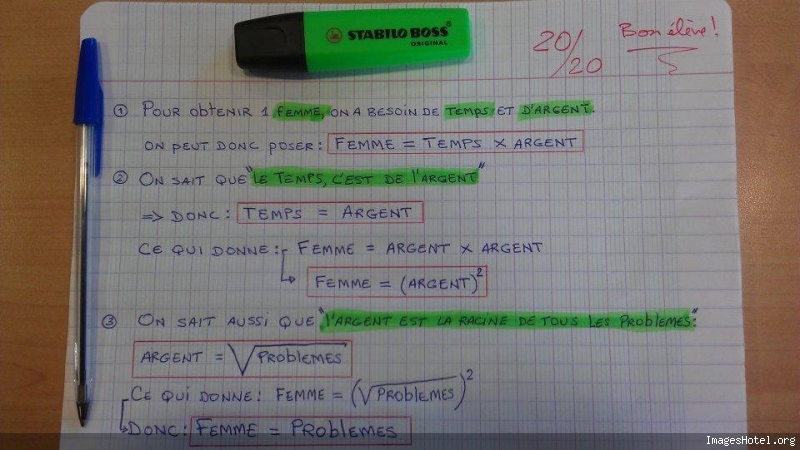 STABILO BOSS®
ORIGINAL
20/20
Bon élève!
① POUR ObTENIR 1 FEMME, ON A BESOIN DE TEMPS ET D'ARGENT.
ON PEUT DONC POSER: FEMME = TEMPS X ARGENT
② ON SAIT QUE "LE TEMPS, C'EST DE L'ARGENT"
=> DONC: TEMPS = ARGENT
CE QUI DONNE: FEMME = ARGENT X ARGENT
FEMME = (ARGENT)²
③ ON SAIT AUSSI QUE "L'ARGENT EST LA RACINE DE TOUS LES PRObLEMES":
ARGENT = √PRObLEMES
CE QUI DONNE: FEMME = (√PRObLEMES)²
DONC: FEMME = PRObLEMES
ImagesHotel.org